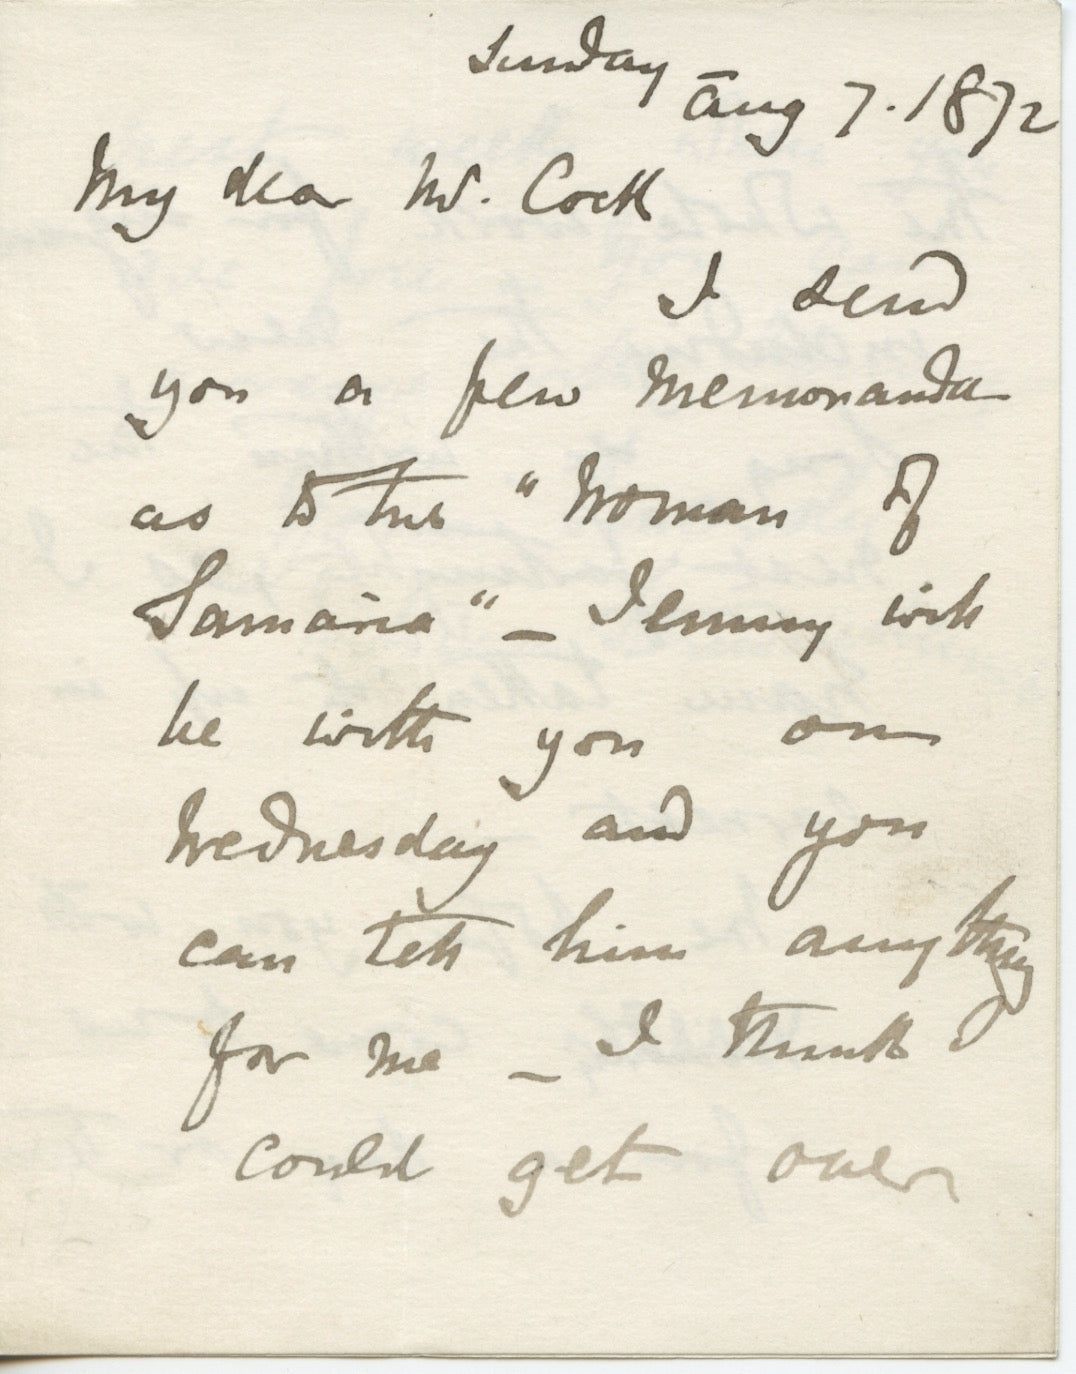 Sunday
Aug 7. 1872
My dear Mr. Cock
I send
you a few Memoranda
as to the "Woman of
Samaria" – Jemmy will
be with you on
Wednesday and you
can tell him anything
for me – I think I
could get over